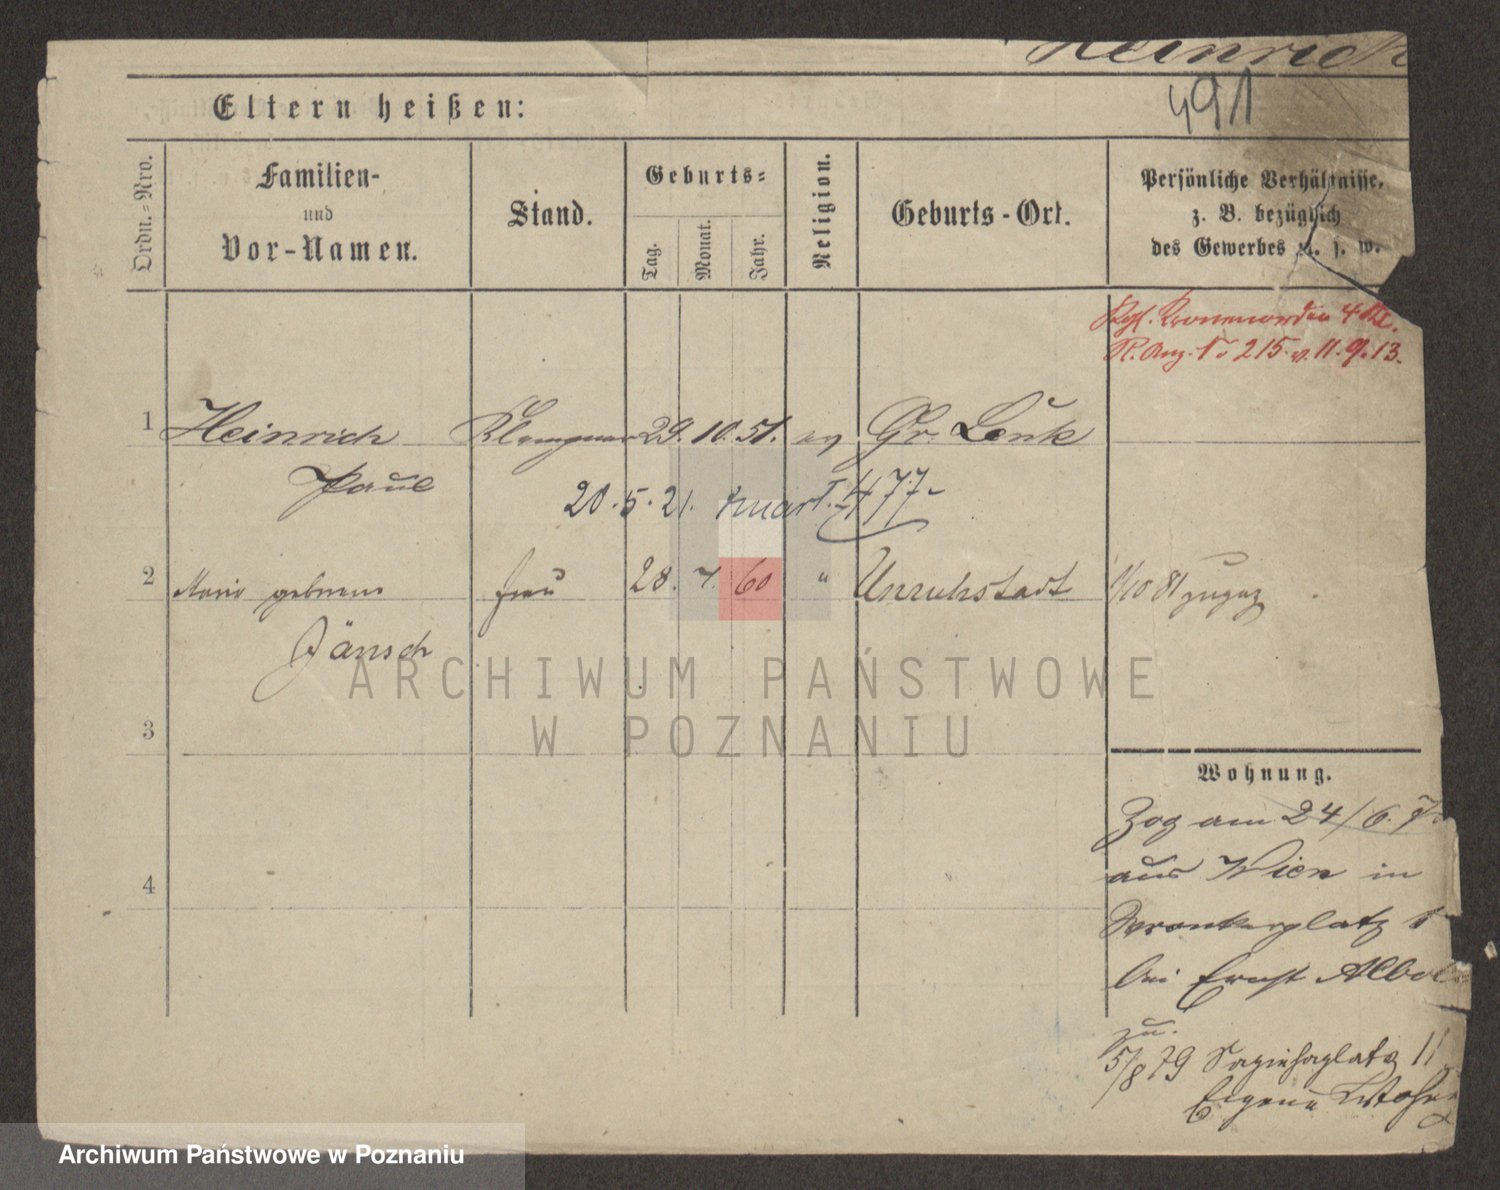 Heinrich
491
Eltern heißen:
Ordn.-Nro.
Familien-
und
Vor-Namen.
Stand.
Geburts-
Tag.
Monat.
Jahr.
Religion.
Geburts-Ort.
Persönliche Verhältnisse,
z. B. bezüglich
des Gewerbes u. s. w.
Kgl. Kronenorden 4 Kl.
R. Anz. No 215 v. 11.9.13.
1 Heinrich Klempner 29. 10. 51. ev Gr. Lenk
Paul
20.5.21. 477
2 Marie geborene Frau 28. 7. 60 " Unruhstadt 1/10 81 zugez
Jänsch
3
4
Wohnung.
Zog am 24/6.
aus Wien in
Wronkerplatz
bei Ernst
zu.
5/8 79 Sapiehaplatz 11
Eigene
ARCHIWUM PAŃSTWOWE
W POZNANIU
Archiwum Państwowe w Poznaniu